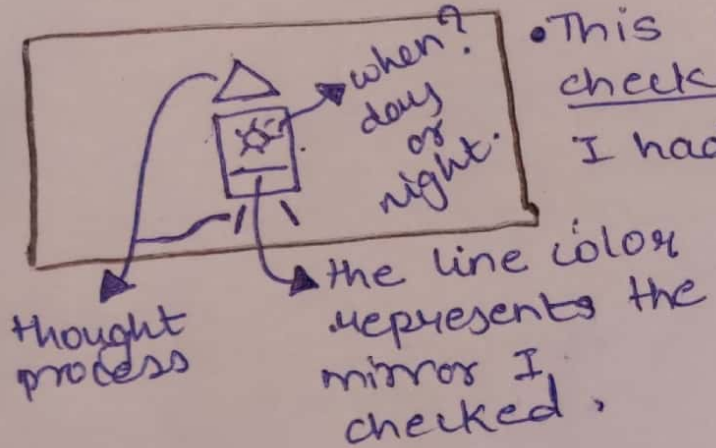 when?
day
or
night.
• This
check
I had
thought
process
the line color
represents the
mirror I
checked.